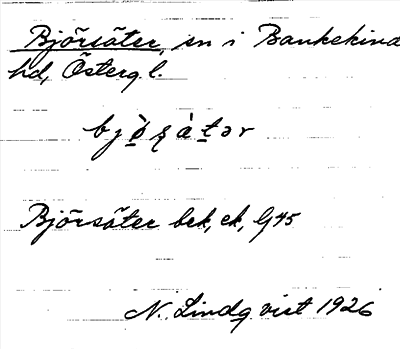 Björsäter, sn i Bankekind
hd, Östergl.
Björsäter bek, ek, G45
N. Lindqvist 1926